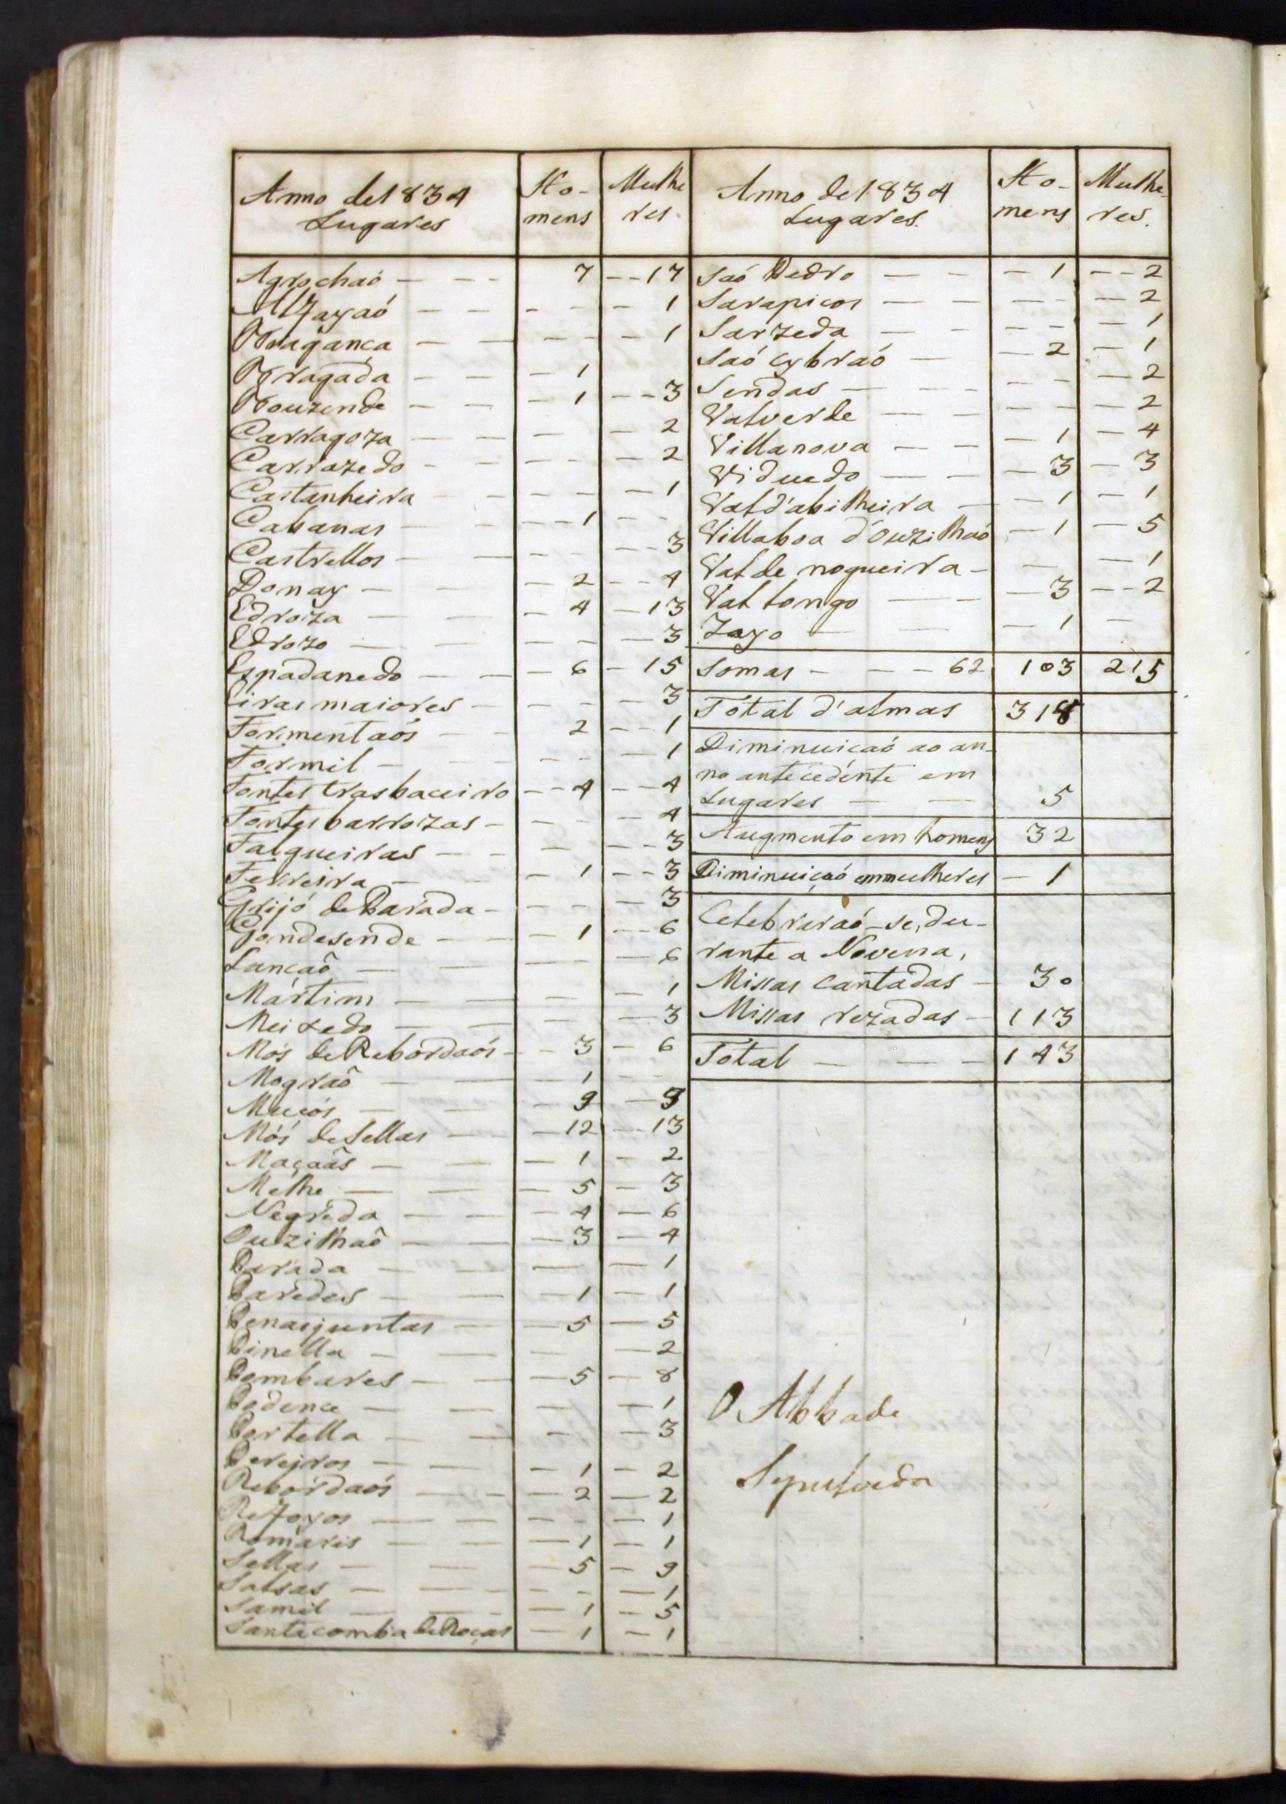 Anno de 1834 Lugares | Ho-mens | Mulhe res.
Agrochaó — — — 7 — — 17
Alfayaó — — — — — 1
Bragança — — — — — 1
Bragada — — — 1
Bouzende — — — 1 — — 3
Carragoza — — — — — 2
Carrazedo — — — — — 2
Castanheira — — — — 1
Cabanas — — — 1 —
Castrellos — — — — — 3
Donay — — — 2 — — 4
Edroza — — — 4 — 13
Edrozo — — — — — 3
Espadanedo — — 6 — 15
Eiras maiores — — — — 3
Formentaós — — 2 — 1
Formil — — — — — 1
Fontes trasbaceiro — — 4 — 4
Fontes barrozas — — — — 4
Falgueiras — — — — 3
Ferreira — — — 1 — — 3
Grijó de Parada — — — — 3
Gondesende — — 1 — — 6
Lançaõ — — — — — 6
Mártim — — — — — 1
Meixedo — — — — — 3
Mós de Rebordaós — — 3 — 6
Mograõ — — — 1 — —
Muçós — — — 9 — 9
Mós de Sellas — — 12 — 13
Maçaãs — — — 1 — 2
Melhe — — — 5 — 3
Negréda — — — 4 — 6
Ouzilhaõ — — — 3 — 4
Parada — — — — — 1
Paredes — — — 1 — 1
Penasjuntas — — 5 — 5
Pinella — — — — 2
Pombares — — — 5 — 8
Podence — — — — — 1
Portella — — — — 3
Pereiros — — — 1 — 2
Rebórdaós — — — 2 — 2
Refoyos — — — — — 1
Romáris — — — 1 — 1
Sellas — — — 5 — 9
Salsas — — — — — 1
Samil — — — 1 — 5
Santacomba de Roças — 1 — 1
Anno de 1834 Lugares. | Ho-mens | Mulhe-res.
Saó Pedro — — — 1 — — 2
Sarapicos — — — — — 2
Sarzeda — — — — — 1
Saó Cybraó — — 2 — 1
Sendas — — — — — 2
Valverde — — — — — 2
Villanova — — — 1 — 4
Viduedo — — — 3 — 3
Val d'abilheira — — 1 — 1
Villaboa d'Ouzilhaó — 1 — 5
Val de nogueira — — — 1
Val longo — — — 3 — — 2
Zoyo — — — 1 —
Somas — — — 62 | 103 | 215
Total d'almas | 318
Diminuiçaó ao an-
no antecedente em
Lugares — — 5
Augmento em homens 32
Diminuiçaó em mulheres — 1
Celebraraó-se, du-
rante a Novena,
Missas cantadas — 30
Missas rezadas — 113
Total — — — 143
O Abbade
Sepulveda